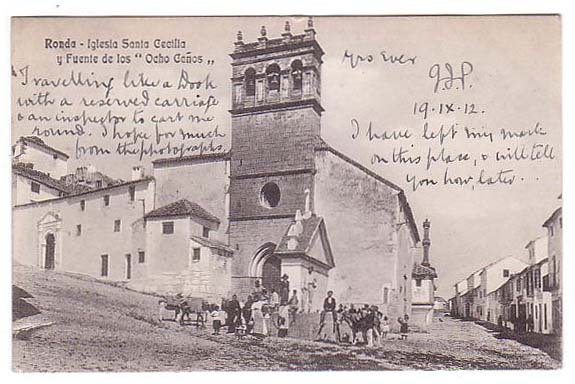 Ronda - Iglesia Santa Cecilia
y Fuente de los "Ocho Caños„
"Travelling like a Dook
with a reserved carriage
& an inspector to cart me
round. I hope for much
from the photographs,
Yrs Ever
19.IX.12.
I have left my mark
on this place, & will tell
you how, later..